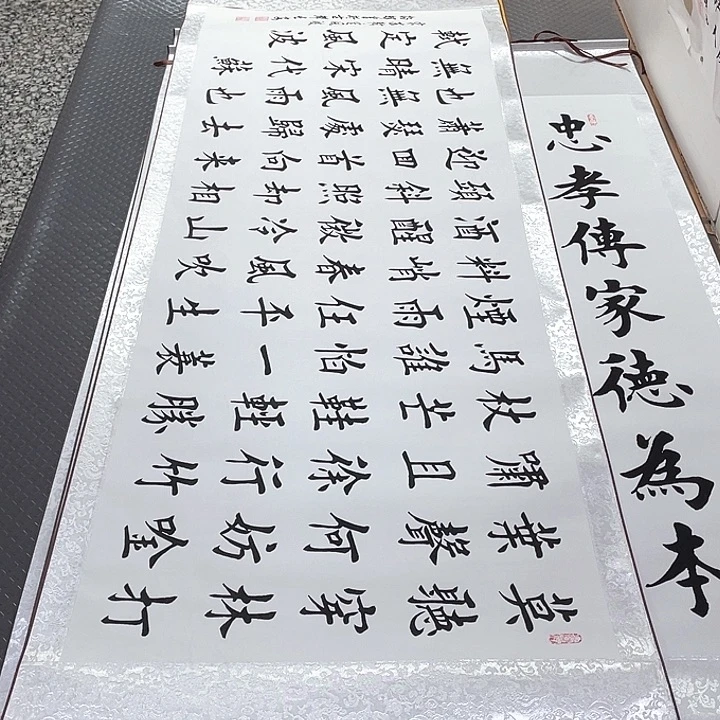 莫聽穿林打
葉聲何妨吟
嘯且徐行竹
杖芒鞋輕勝
馬誰怕一蓑
煙雨任平生
料峭春風吹
酒醒微冷山
頭斜照却相
迎回首向来
蕭瑟處歸去
也無風雨也
無晴宋代蘇
軾定風波
忠孝傳家德為本